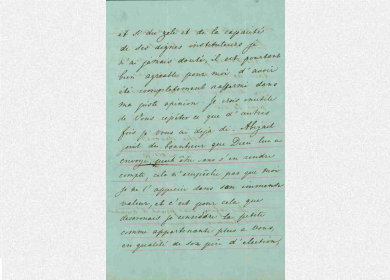 et du zèle et de la capacité
de ses dignes instituteurs je
n'ai jamais douté, il est pourtant
bien agréable pour moi d'avoir
été complètement raffermi dans
ma juste opinion. Je crois inutile
de Vous répéter ce que d'autres
fois je vous ai déjà dit. Abigail
jouit du bonheur que Dieu lui a
envoyé peut être sans s'en rendre
compte, cela n'empêche pas que moi
je ne l'apprécie dans son immense
valeur, et c'est pour cela que
désormais je considère la petite
comme appartenante plus à Vous,
en qualité de son père d'élection,